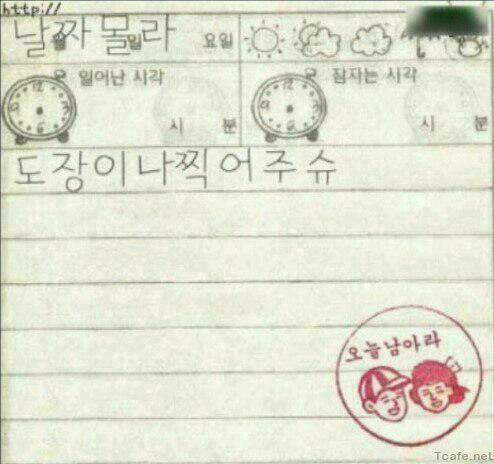 http://
날짜몰라 요일
일어난 시각
잠자는 시각
시 분
시 분
도장이나찍어주슈
오늘남아라
Tcafe.net